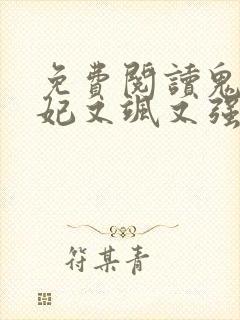 免費閱讀鬼
妃又颯又強
符某青